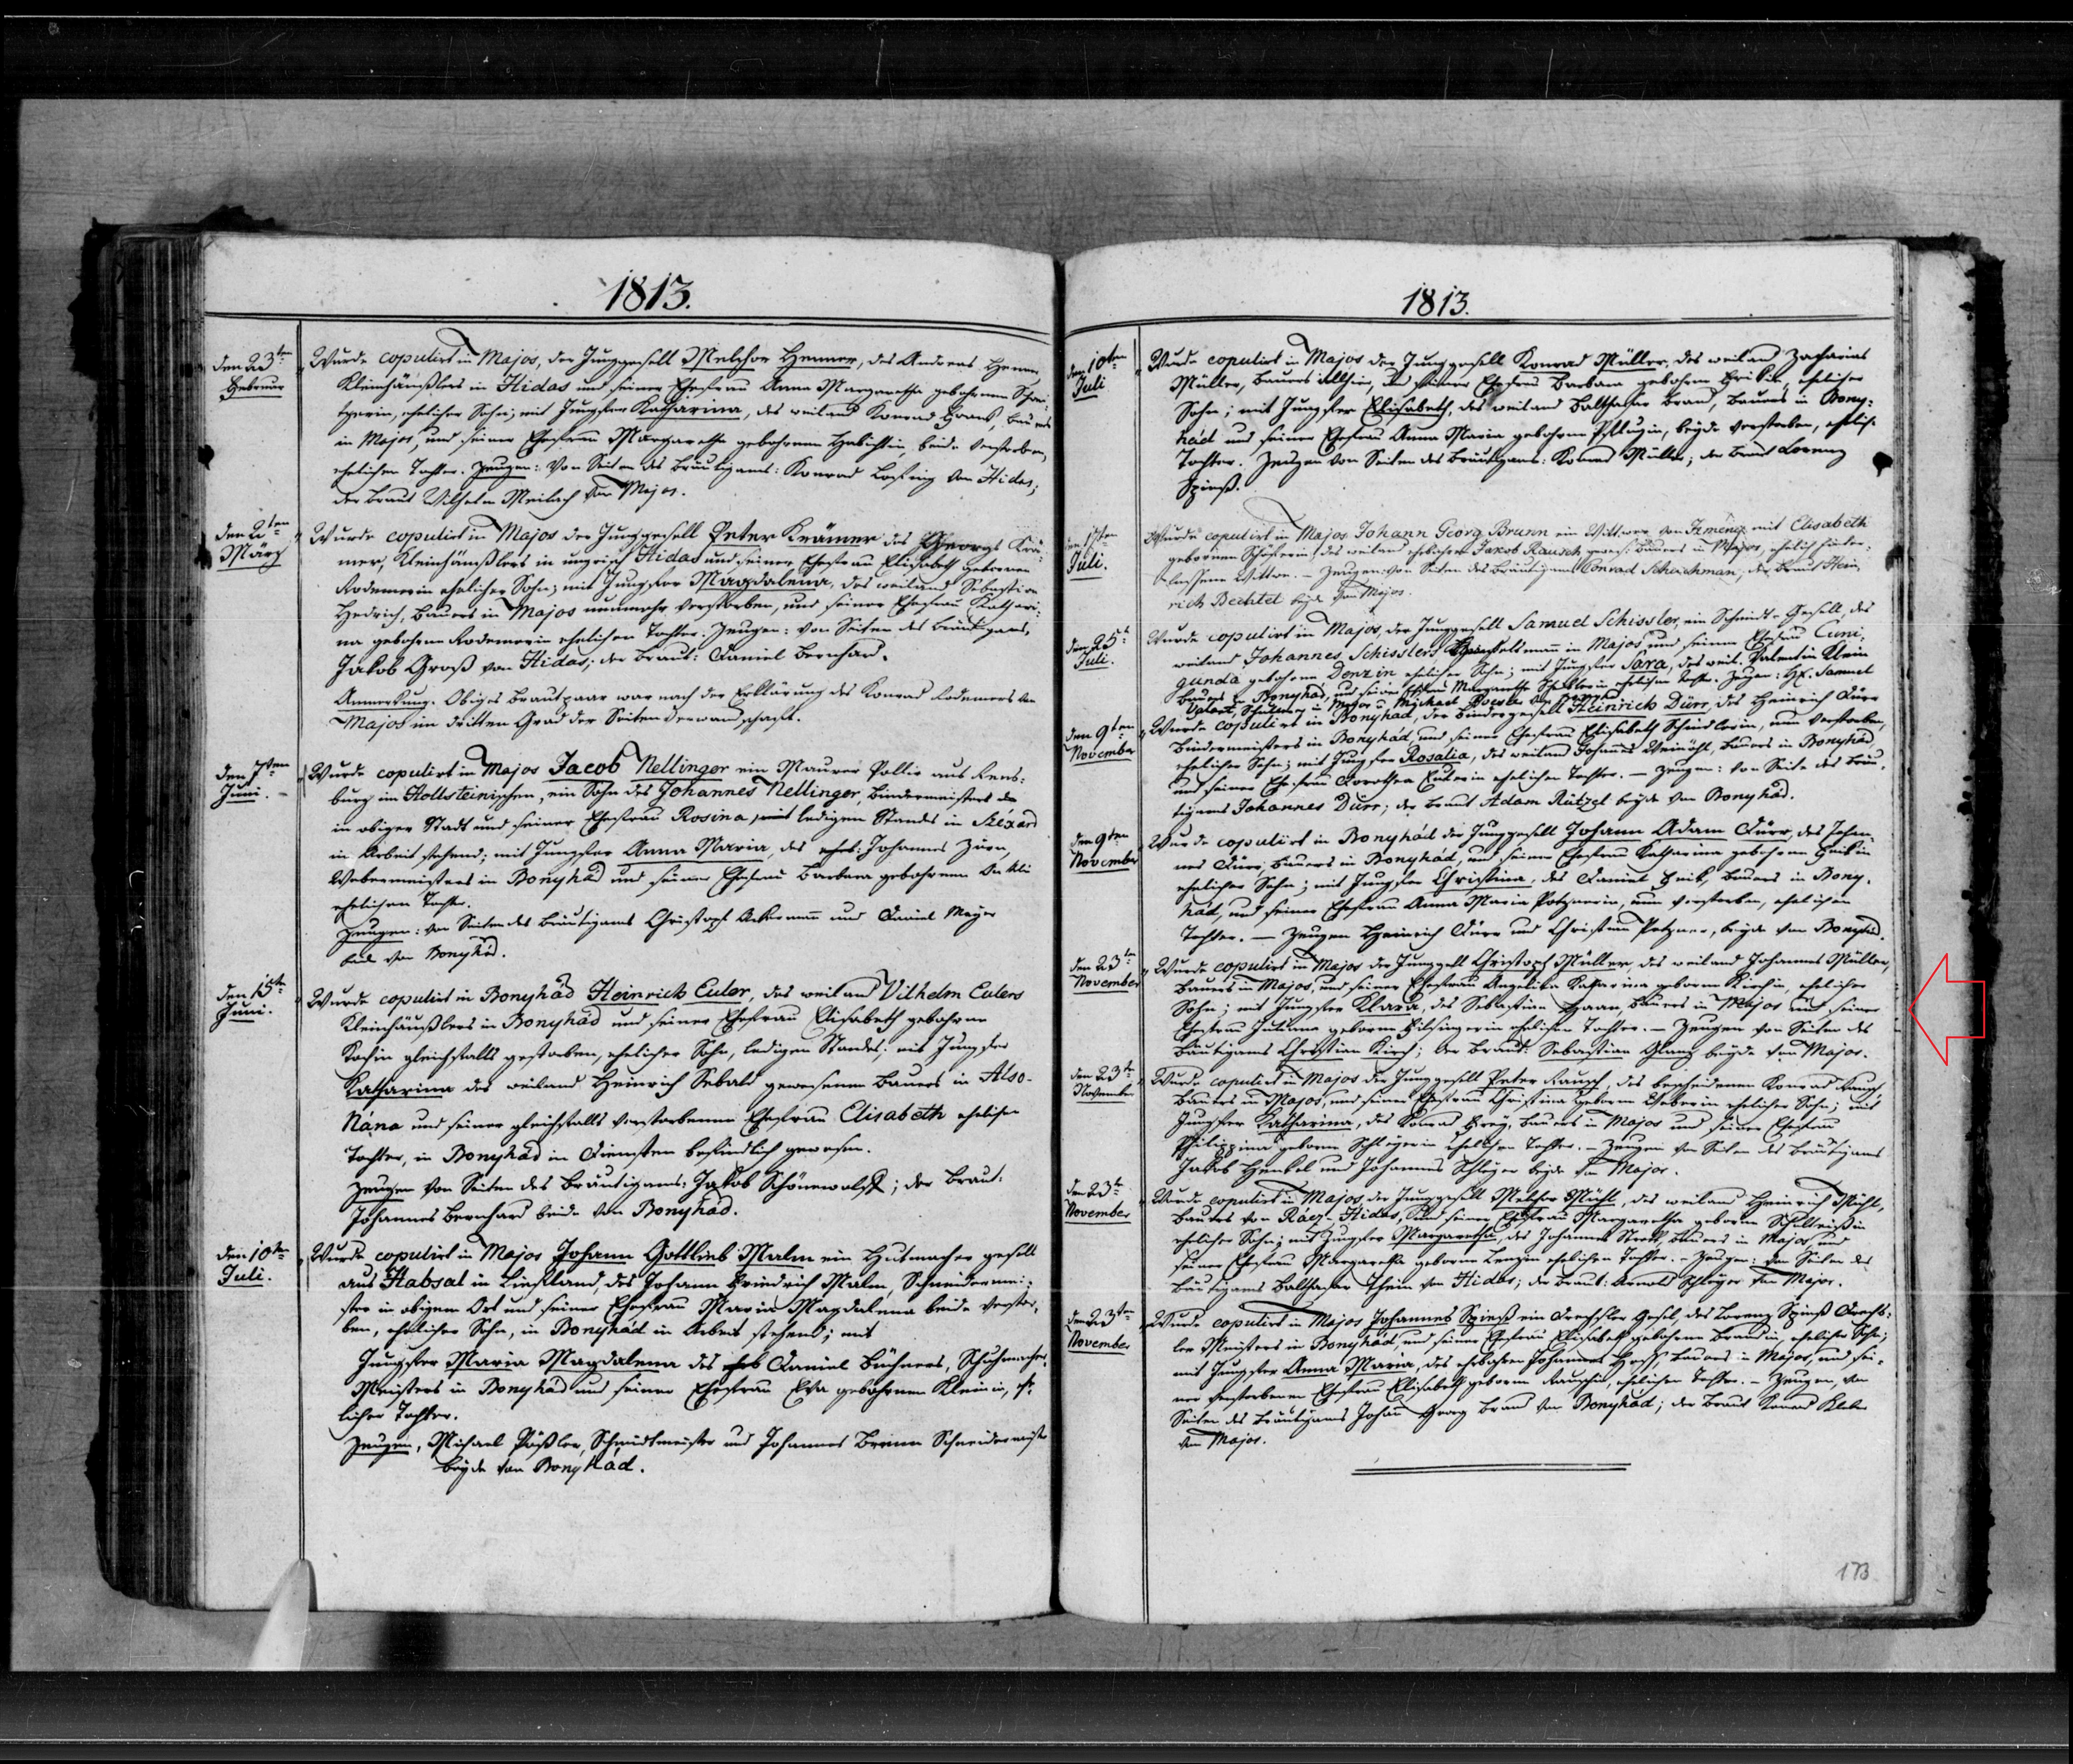 1813.
den 23ten
Februar
Wurde copulirt in Majos, der Junggesell Melchor Hemmer, des Andreas Hemer
Kleinhäußlers in Hidas und seiner Ehefrau Anna Margaretha gebohrnen
ehelicher Sohn; mit Jungfer Katharina, des weiland Konrad Haas, Bauers
in Majos, und seiner Ehefrau Margaretha gebohrnen Habichtin, beide verstorben,
ehelichen Tochter. Zeugen: Von Seiten des Bräutigams: Konrad von Hidas;
der Braut Wilhelm Meilach von Majos.
den 2ten
März
Wurde copulirt in Majos der Junggesell Peter Krämer des Georgs Krä-
mer, Kleinhäußlers in ungrisch Hidas und seiner Ehefrau Elisabeth gebornen
Rodemerin ehelicher Sohn; mit Jungfer Magdalena, des weiland Sebastian
Hedrich, Bauers in Majos nunmehr verstorben, und seiner Ehefrau Kathari-
na gebohrne Rodemerin ehelichen Tochter. Zeugen: von Seiten des Bräutigams,
Jakob Groß von Hidas; der Braut: Daniel Bernhard.
Anmerkung. Obiges Brautpaar war nach der Erklärung des Konrad Rodemers von
Majos im dritten Grad der Seitenverwandschaft.
den 7ten
Juni.
Wurde copulirt in Majos Jacob Nellinger ein Maurer Pollir aus Rens-
burg im Hollsteinischen, ein Sohn des Johannes Nellinger, Bindermeisters
in obiger Stadt und seiner Ehefrau Rosina, ledigen Standes in Széxard
in Arbeit stehend; mit Jungfer Anna Maria, des Johannes Zürn,
Webermeisters in Bonyhád und seiner Ehefrau Barbara gebohrnen
ehelichen Tochter.
Zeugen: von Seiten des Bräutigams Christoph Ackermann und Daniel Mayer
beide von Bonyhád.
den 15ten
Juni.
Wurde copulirt in Bonyhád Heinrich Euler, des weiland Vilhelm Eulers
Kleinhäußlers in Bonyhád und seiner Ehefrau Elisabeth gebohrne
Kochin gleichfalls gestorben, ehelicher Sohn, ledigen Standes: mit Jungfer
Katharina des weiland Heinrich Sebald gewesenen Bauers in Also-
Nána und seiner gleichfalls verstorbenen Ehefrau Elisabeth ehelichen
Tochter, in Bonyhád in Diensten befindlich gewesen.
Zeugen von Seiten des Bräutigams: Jakob Schönewolf; der Braut:
Johannes Bernhard beide von Bonyhád.
den 10ten
Juli.
Wurde copulirt in Majos Johann Gottlieb Malm ein Hutmacher gesell
aus Habsal in Liefland, des Johann Friedrich Malm, Schneidermei-
ster in obigem Ort und seiner Ehefrau Maria Magdalena beide verstor-
ben, ehelicher Sohn, in Bonyhád in Arbeit stehend; mit
Jungfer Maria Magdalena des Daniel Büchners, Schuhmacher
Meisters in Bonyhád und seiner Ehefrau Eva gebohrnen Kleinin, ehe-
licher Tochter.
Zeugen, Michael Pößler, Schmidtmeister und Johannes Schneidermeister
beyde von Bonyhád.
1813.
den 10ten
Juli
Wurde copulirt in Majos der Junggesell Konrad Müller, des weiland Zacharias
Müller, Bauers allhier, und seiner Ehefrau Barbara gebohrne ehelicher
Sohn; mit Jungfer Elisabeth, des weiland Balthasar Brand, Bauers in Bony-
hád und seiner Ehefrau Anna Maria gebohrne beyde verstorben, ehelich
Tochter. Zeugen von Seiten des Bräutigams: Konrad Müller; der Braut Lorenz
Spieß.
den 17ten
Juli.
Wurde copulirt in Majos Johann Georg Brunn ein Wittwer von mit Elisabeth
gebornen Schäferin, des weiland ehelichen Jacob Rausch gewes: Bauers in Majos, ehelich hinter-
lassene Wittwe. – Zeugen: von Seiten des Bräutigams Conrad Schuchman; der Braut Hein-
rich Bechtel beyde von Majos.
den 25t
Juli.
Wurde copulirt in Majos, der Junggesell Samuel Schissler, ein Schmidt-Gesell, des
weiland Johannes Schisslers Handelsmann in Majos, und seiner Ehefrau Cuni-
gunda gebohrne Denzin ehelicher Sohn; mit Jungfer Sara, des weil. Valentin Klein
Bauers in Bonyhád, und seiner Ehefrau Margaretha ehelichen Tochter. Zeugen: H. Samuel
Schullehrer in Majos u. Michael
den 9ten
November
Wurde copulirt in Bonyhád, der Bindergesell Heinrich Dürr, des Heinrich Dürr
Bindermeisters in Bonyhád, und seiner Ehefrau Elisabeth Schindlerin, nun verstorben,
ehelicher Sohn; mit Jungfer Rosalia, des weiland Johannes Bauers in Bonyhád
und seiner Ehefrau Dorothea Eulerin ehelichen Tochter. – Zeugen: von Seite des Bräu-
tigams Johannes Dürr; der Braut Adam Rützel beyde von Bonyhád.
den 9ten
November
Wurde copulirt in Bonyhád der Junggesell Johann Adam Dürr, des Johan-
nes Dürr, Bauers in Bonyhád, und seiner Ehefrau Katharina gebohrne
ehelicher Sohn; mit Jungfer Christina, des Daniel Bauers in Bony-
hád, und seiner Ehefrau Anna Maria Potznerin, nun verstorben, ehelichen
Tochter. – Zeugen Heinrich Dürr und Christian Potzner, beyde von Bonyhád.
den 23ten
November
Wurde copulirt in Majos der Junggesell Christoph Müller, des weiland Johannes Müller,
Bauers in Majos, und seiner Ehefrau Angelika Katharina geborne Kirchin, ehelicher
Sohn; mit Jungfer Klara, des Sebastian Haan, Bauers in Majos und seiner
Ehefrau Juliana geborne Hilsingerin ehelichen Tochter. – Zeugen von Seiten des
Bäutigams Christian Kirch; der Braut: Sebastian Glanz beyde von Majos.
den 23t
November
Wurde copulirt in Majos der Junggesell Peter Rausch, des bescheidenen Konrad Rausch
Bauers in Majos, und seiner Ehefrau Christina geborne Weberin ehelicher Sohn; mit
Jungfer Katharina, des Konrad Frey, Bauers in Majos und seiner Ehefrau
Philippina geborne Schleyerin ehelichen Tochter. – Zeugen von Seiten des Bräutigams
Jakob Henkel und Johannes Schleyer beyde von Majos.
den 23t
November
Wurde copulirt in Majos, der Junggesell Melchor Mühl, des weiland Heinrich Mühl,
Bauers von Rácz-Hidas, und seiner Ehefrau Margaretha geborne
ehelicher Sohn; mit Jungfer Margaretha, des Johannes Bauers in Majos und
seiner Ehefrau Margaretha geborne Lenzin ehelichen Tochter. – Zeugen: von Seiten des
Bäutigams Balthasar Thein von Hidas; der Braut: Arnold Schleyer von Majos.
den 23ten
November
Wurde copulirt in Majos Johannes Spieß ein Drechsler Gesell, des Lorenz Spieß Drechs-
ler Meisters in Bonyhád, und seiner Ehefrau Elisabeth gebohrne Brandin, ehelicher Sohn;
mit Jungfer Anna Maria, des ehrbahren Johannes Bauers in Majos, und sei-
ner verstorbenen Ehefrau Elisabeth geborne Rauschin, ehelichen Tochter. – Zeugen, von
Seiten des Bräutigams Johann Georg Brand von Bonyhád; der Braut Konrad
von Majos.
173